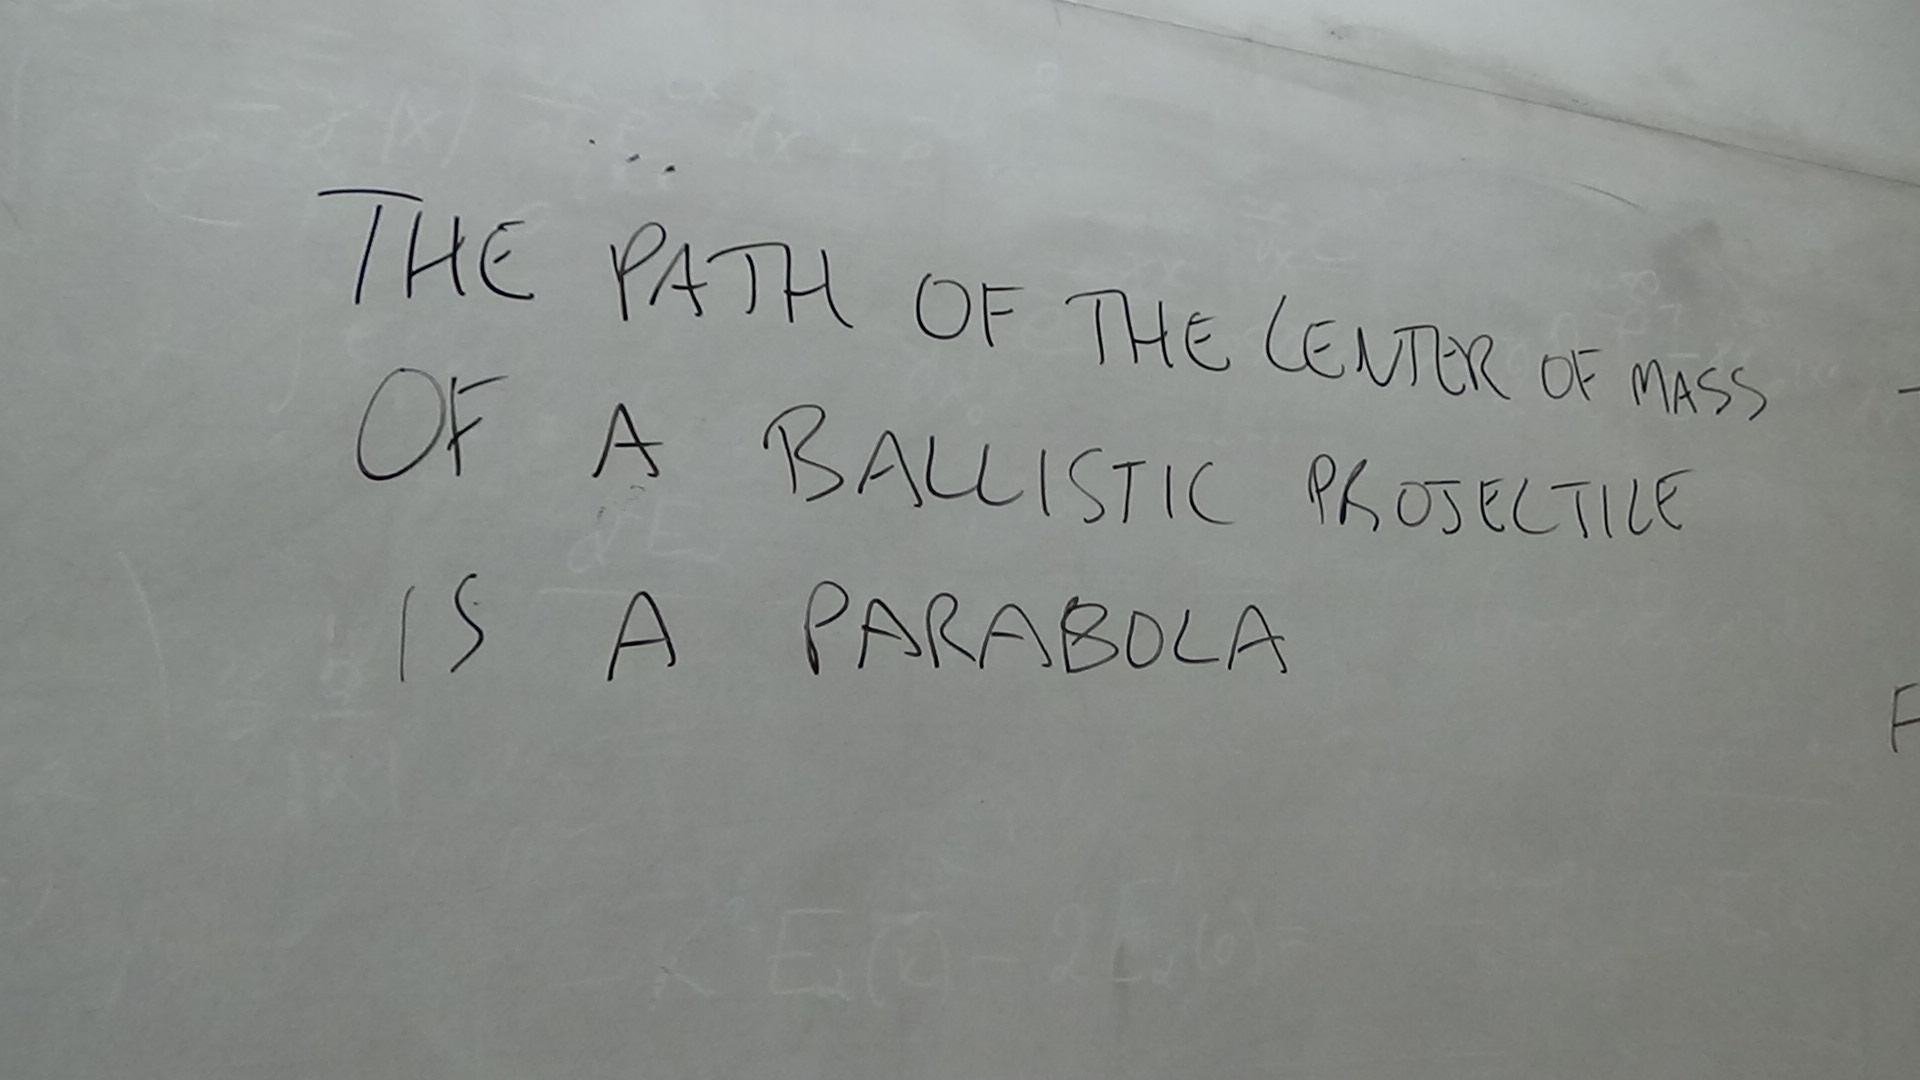 THE PATH OF THE CENTER OF MASS
OF A BALLISTIC PROJECTILE
IS A PARABOLA